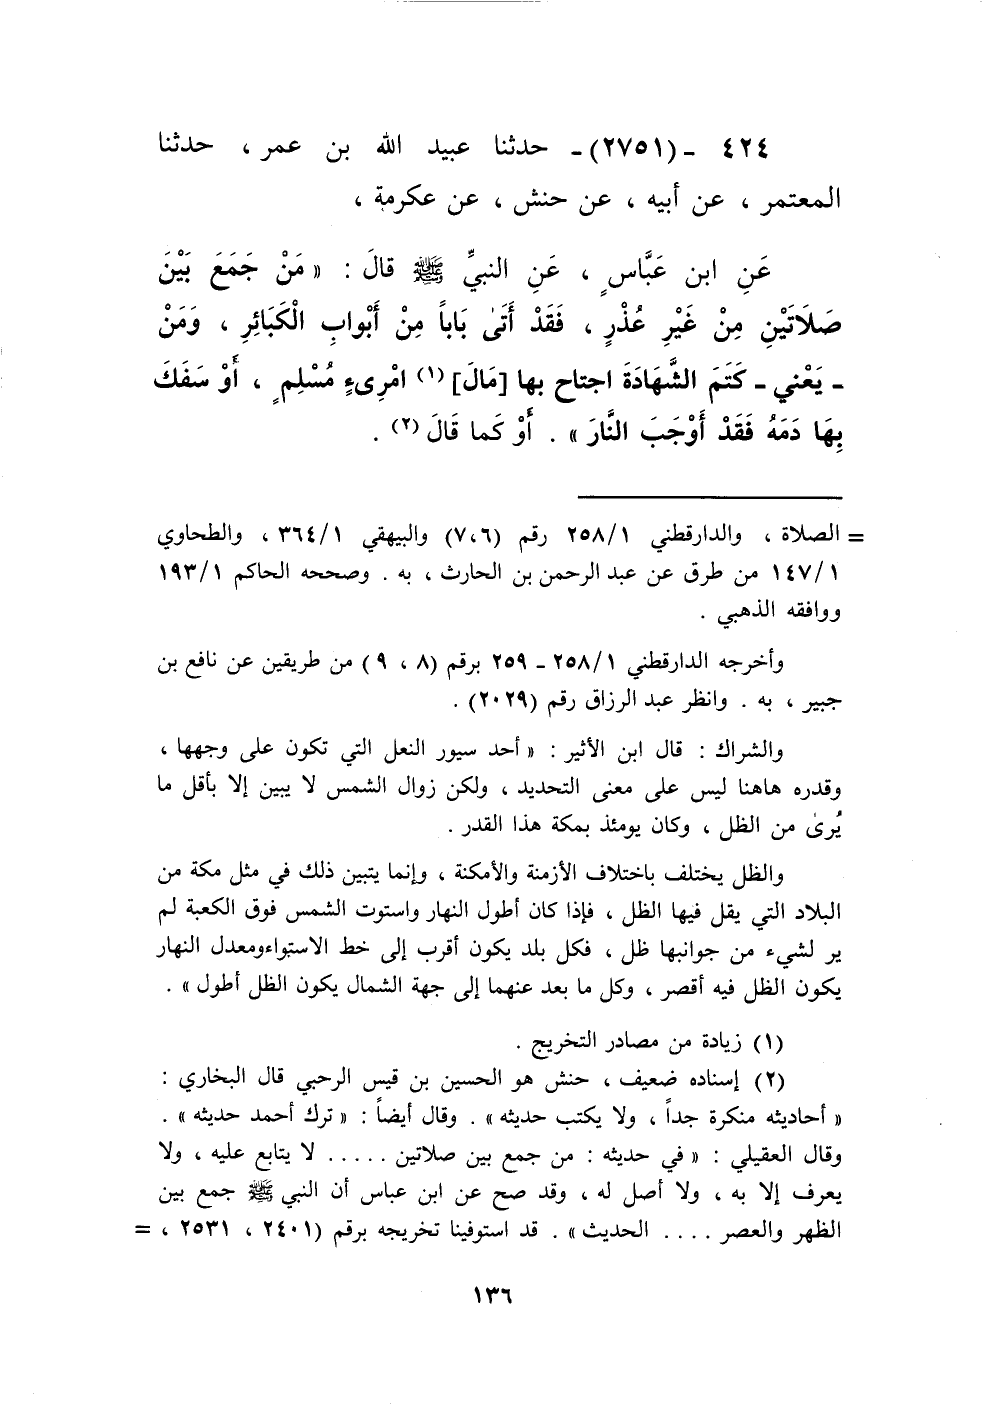 ٤٢٤ ـ (٢٧٥١) ـ حدثنا عبيد الله بن عمر ، حدثنا
المعتمر ، عن أبيه ، عن حنش ، عن عكرمة ،
عَنِ ابن عَبَّاسٍ ، عَنِ النبيِّ ﷺ قالَ : « مَنْ جَمَعَ بَيْنَ
صَلَاتَيْنِ مِنْ غَيْرِ عُذْرٍ ، فَقَدْ أَتَىٰ بَاباً مِنْ أَبْوابِ الْكَبَائِرِ ، وَمَنْ
ـ يَعْني ـ كَتَمَ الشَّهَادَةَ اجتاح بها [مَالَ] (١) امْرِىءٍ مُسْلِمٍ ، أَوْ سَفَكَ
بِهَا دَمَهُ فَقَدْ أَوْجَبَ النَّارَ » . أَوْ كَما قَالَ (٢) .
= الصلاة ، والدارقطني ٢٥٨/١ رقم (٧،٦) والبيهقي ٣٦٤/١ ، والطحاوي
١٤٧/١ من طرق عن عبد الرحمن بن الحارث ، به . وصححه الحاكم ١٩٣/١
ووافقه الذهبي .
وأخرجه الدارقطني ٢٥٨/١ ـ ٢٥٩ برقم (٨ ، ٩) من طريقين عن نافع بن
جبير ، به . وانظر عبد الرزاق رقم (٢٠٢٩) .
والشراك : قال ابن الأثير : « أحد سيور النعل التي تكون على وجهها ،
وقدره هاهنا ليس على معنى التحديد ، ولكن زوال الشمس لا يبين إلا بأقل ما
يُرىٰ من الظل ، وكان يومئذ بمكة هذا القدر .
والظل يختلف باختلاف الأزمنة والأمكنة ، وإنما يتبين ذلك في مثل مكة من
البلاد التي يقل فيها الظل ، فإذا كان أطول النهار واستوت الشمس فوق الكعبة لم
ير لشيء من جوانبها ظل ، فكل بلد يكون أقرب إلى خط الاستواءومعدل النهار
يكون الظل فيه أقصر ، وكل ما بعد عنهما إلى جهة الشمال يكون الظل أطول » .
(١) زيادة من مصادر التخريج .
(٢) إسناده ضعيف ، حنش هو الحسين بن قيس الرحبي قال البخاري :
« أحاديثه منكرة جداً ، ولا يكتب حديثه » . وقال أيضاً : « ترك أحمد حديثه » .
وقال العقيلي : « في حديثه : من جمع بين صلاتين ..... لا يتابع عليه ، ولا
يعرف إلا به ، ولا أصل له ، وقد صح عن ابن عباس أن النبي ﷺ جمع بين
الظهر والعصر .... الحديث » . قد استوفينا تخريجه برقم (٢٤٠١ ، ٢٥٣١ ، =
١٣٦